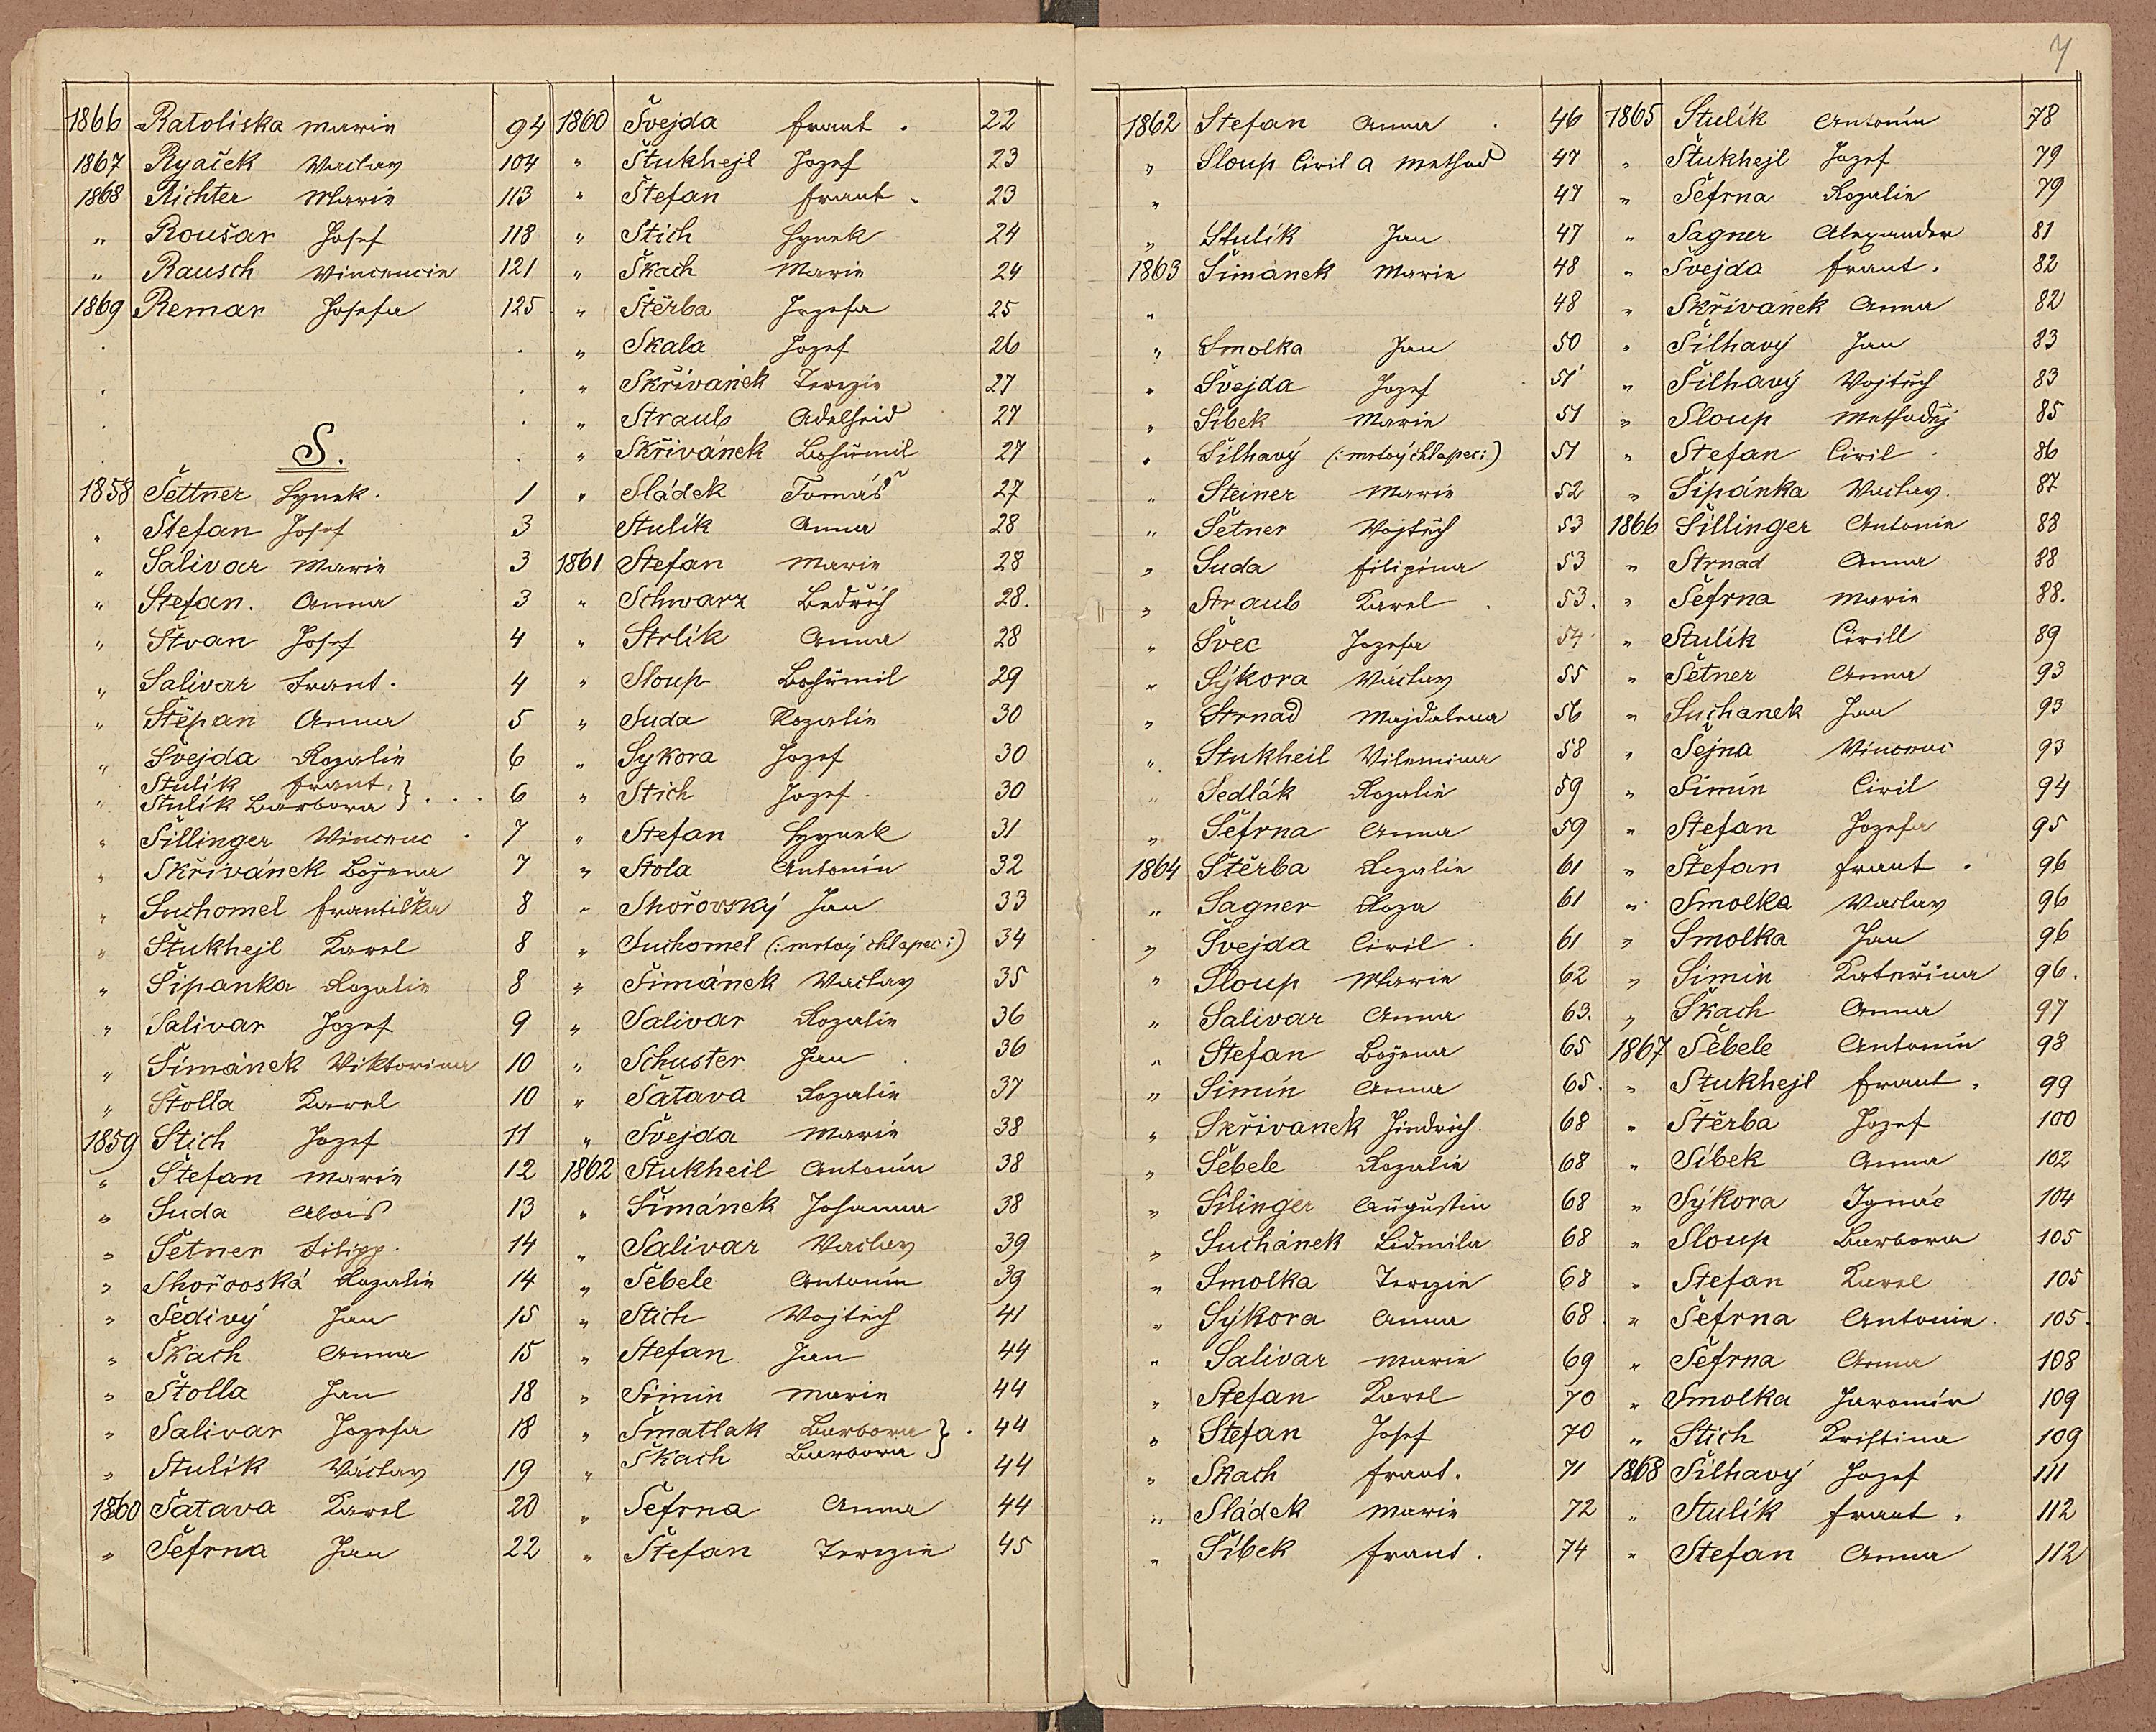 7
1866 Ratoliska Marie 94
1867 Ryaček Waclav 104
1868 Richter Marie 113
" Roušar Josef 118
" Rausch Wincencie 121
1869 Remar Josefa 125
S.
1858 Šettner Hynek. 1
" Stefan Josef 3
" Salivar Marie 3
" Stefan. Anna 3
" Štvan Josef 4
" Salivar Frant. 4
" Štěpan Anna 5
" Švejda Rozalie 6
" Stulík Frant. }
" Stulík Barbora } . . . 6
" Šillinger Wincenc 7
" Skřivánek Božena 7
" Suchomel Františka 8
" Štukhejl Karel 8
" Šipanka Rozalie 8
" Salivar Jozef 9
" Šimánek Viktorina 10
" Štolla Karel 10
1859 Stich Jozef 11
" Štefan Marie 12
" Suda Alois 13
" Šetner Filipp. 14
" Skořovská Rozalie 14
" Šedivý Jan 15
" Škach Anna 15
" Štolla Jan 18
" Salivar Jozefa 18
" Stulík Václav 19
1860 Šatava Karel 20
" Šefrna Jan 22
1860 Švejda Frant. 22
" Štukhejl Jozef 23
" Štefan Frant. 23
" Stich Hynek 24
" Škach Marie 24
" Štěrba Jozefa 25
" Skala Jozef 26
" Skřivánek Terezie 27
" Straub Adelheid 27
" Skřivánek Bohumil 27
" Sládek Tomáš 27
Stulík Anna 28
1861 Stefan Marie 28
" Schwarz Bedřich 28.
" Strlík Anna 28
" Sloup Bohumil 29
" Suda Rozalie 30
" Sykora Jozef 30
" Stich Jozef. 30
" Stefan Hynek 31
" Štola Antonín 32
" Skořovský Jan 33
" Suchomel (:mrtvý chlapec:) 34
" Šimánek Waclav 35
" Salivar Rozalie 36
" Schuster Jan. 36
" Šatava Rozalie 37
" Švejda Marie 38
1862 Stukheil Antonín 38
" Šimánek Johanna 38
" Salivar Waclav 39
" Šebele Antonín 39
" Stich Wojtěch 41
" Stefan Jan 44
" Simin Marie 44
" Šmatlak Barbora } . 44
" Škach Barbora } 44
" Šefrna Anna 44
" Štefan Terezie 45
1862 Stefan Anna . 46
" Sloup Ciril a Method 47
" 47
" Stulík Jan 47
1863 Šimánek Marie 48
" 48
" Smolka Jan 50
" Švejda Jozef 51
" Šibek Marie 51
" Šilhavý (:mrtvý chlapec:) 51
" Steiner Marie 52
" Šetner Wojtěch 53
" Suda Filipina 53
" Straub Karel . 53.
" Švec Jozefa 54
" Sýkora Václav 55
" Strnad Majdalena 56
" Stukheil Vilemina 58
" Sedlák Rozalie 59
" Šefrna Anna 59
1864 Štěrba Rozalie 61
" Sagner Roza 61
" Švejda Ciril . 61
" Sloup Marie 62
" Salivar Anna 63.
" Stefan Božena 65
" Simín Anna 65.
" Skřivanek Jindrich. 68
" Šebele Rozalie 68
" Šilinger Augustin 68
" Suchánek Lidmila 68
" Smolka Terezie 68
" Sýkora Anna 68
" Salivar Marie 69
" Stefan Karel 70
" Stefan Josef 70
" Skach Frant. 71
" Sládek Marie 72
" Šibek Frant. 74
1865 Stulík Antonín 78
" Štukhejl Jozef 79
" Šefrna Rozalie 79
" Sagner Alexander 81
" Švejda Frant. 82
" Skřivanek Anna 82
" Šilhavý Jan 83
" Šilhavý Wojtěch 83
" Sloup Methoděj 85
" Stefan Ciril . 86
" Šipánka Waclav. 87
1866 Šillinger Antonie 88
" Strnad Anna 88
" Šefrna Marie 88.
" Stulík Cirill 89
" Šetner Anna 93
" Suchanek Jan 93
" Šejna Vincenc 93
" Simín Ciril 94
" Stefan Jozefa 95
" Štefan Frant . 96
" Smolka Waclav 96
" Smolka Jan 96
" Simin Kateřina 96.
" Škach Anna 97
1867 Šebele Antonín 98
" Stukhejl Frant. 99
" Štěrba Jozef 100
" Šibek Anna 102
" Sýkora Ignác 104
" Sloup Barbora 105
" Stefan Karel 105
" Šefrna Antonie. 105.
" Šefrna Anna 108
" Smolka Jaromír 109
" Stich Kristina 109
1868 Šilhavý Jozef 111
" Stulík Frant . 112
" Stefan Anna 112